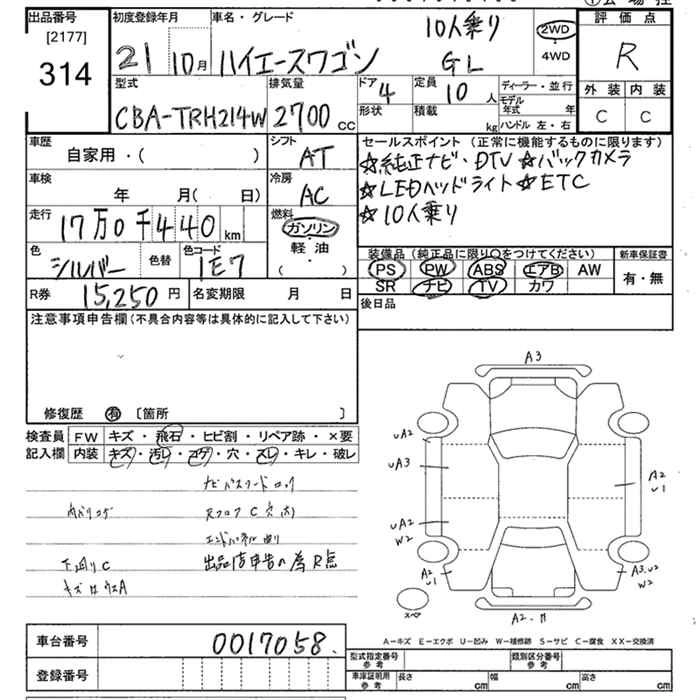 出品番号
[2177]
314
初度登録年月
21 10月
車名・グレード
ハイエースワゴン
10人乗り
GL
2WD
・
4WD
評価点
R
外装 内装
C C
型式
CBA-TRH214W
排気量
2700 cc
ドア 4
形状
定員 10 人
積載 kg
ディーラー・並行
モデル年式 年
ハンドル 左・右
車歴
自家用・( )
シフト
AT
車検
年 月( 日)
冷房
AC
走行
17万0千440 km
燃料
ガソリン
・
軽油
・
( )
色
シルバー
色替
色コード
1E7
R券 15,250 円
名変期限 月 日
セールスポイント(正常に機能するものに限ります)
☆純正ナビ・DTV ☆バックカメラ
☆LEDヘッドライト ☆ETC
☆10人乗り
装備品(純正品に限り○をつけてください)
PS PW ABS エアB AW
SR ナビ TV カワ
新車保証書
有・無
後日品
注意事項申告欄(不具合内容等は具体的に記入して下さい)
修復歴 有 〔箇所 〕
検査員記入欄
FW キズ・飛石・ヒビ割・リペア跡・×要
内装 キズ・汚レ・コゲ・穴・スレ・キレ・破レ
ナビパスワードロック
内ハリコゲ
下回りC
出品店申告の為R点
A3
uA2
uA3
uA2
W2
A2
u1
A2
u1
A3.u2
W2
A2.11
スペア
A-キズ E-エクボ U-凹み W-補修跡 S-サビ C-腐食 XX-交換済
車台番号 0017058.
登録番号
型式指定番号 参考
類別区分番号 参考
車庫証明用 参考
長さ cm
幅 cm
高さ cm